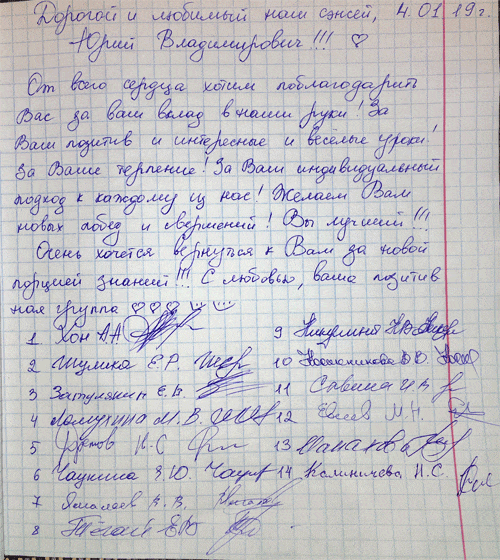 Дорогой и любимый наш сэнсей, 4.01 19г.
Юрий Владимирович!!! ♡
От всего сердца хотим поблагодарить
Вас за ваш вклад в наши руки! За
Ваш позитив и интересные и весёлые уроки!
За Ваше терпение! За Ваш индивидуальный
подход к каждому из нас! Желаем Вам
новых побед и свершений! Вы лучший!!!
Очень хочется вернуться к Вам за новой
порцией знаний!!! С любовью, ваша позитив
ная группа ♡♡♡
1 Хон А.А.
2 Шумика Е.Р.
3 Е.В.
4 Ломухина М.В.
5 Н.С
6 Чаукина Э.Ю.
7 В.В.
8 Е.Ю
9 Н.В.
10 В.В.
11 Савина И.А.
12 М.Н.
13
14 Калиничева Н.С.